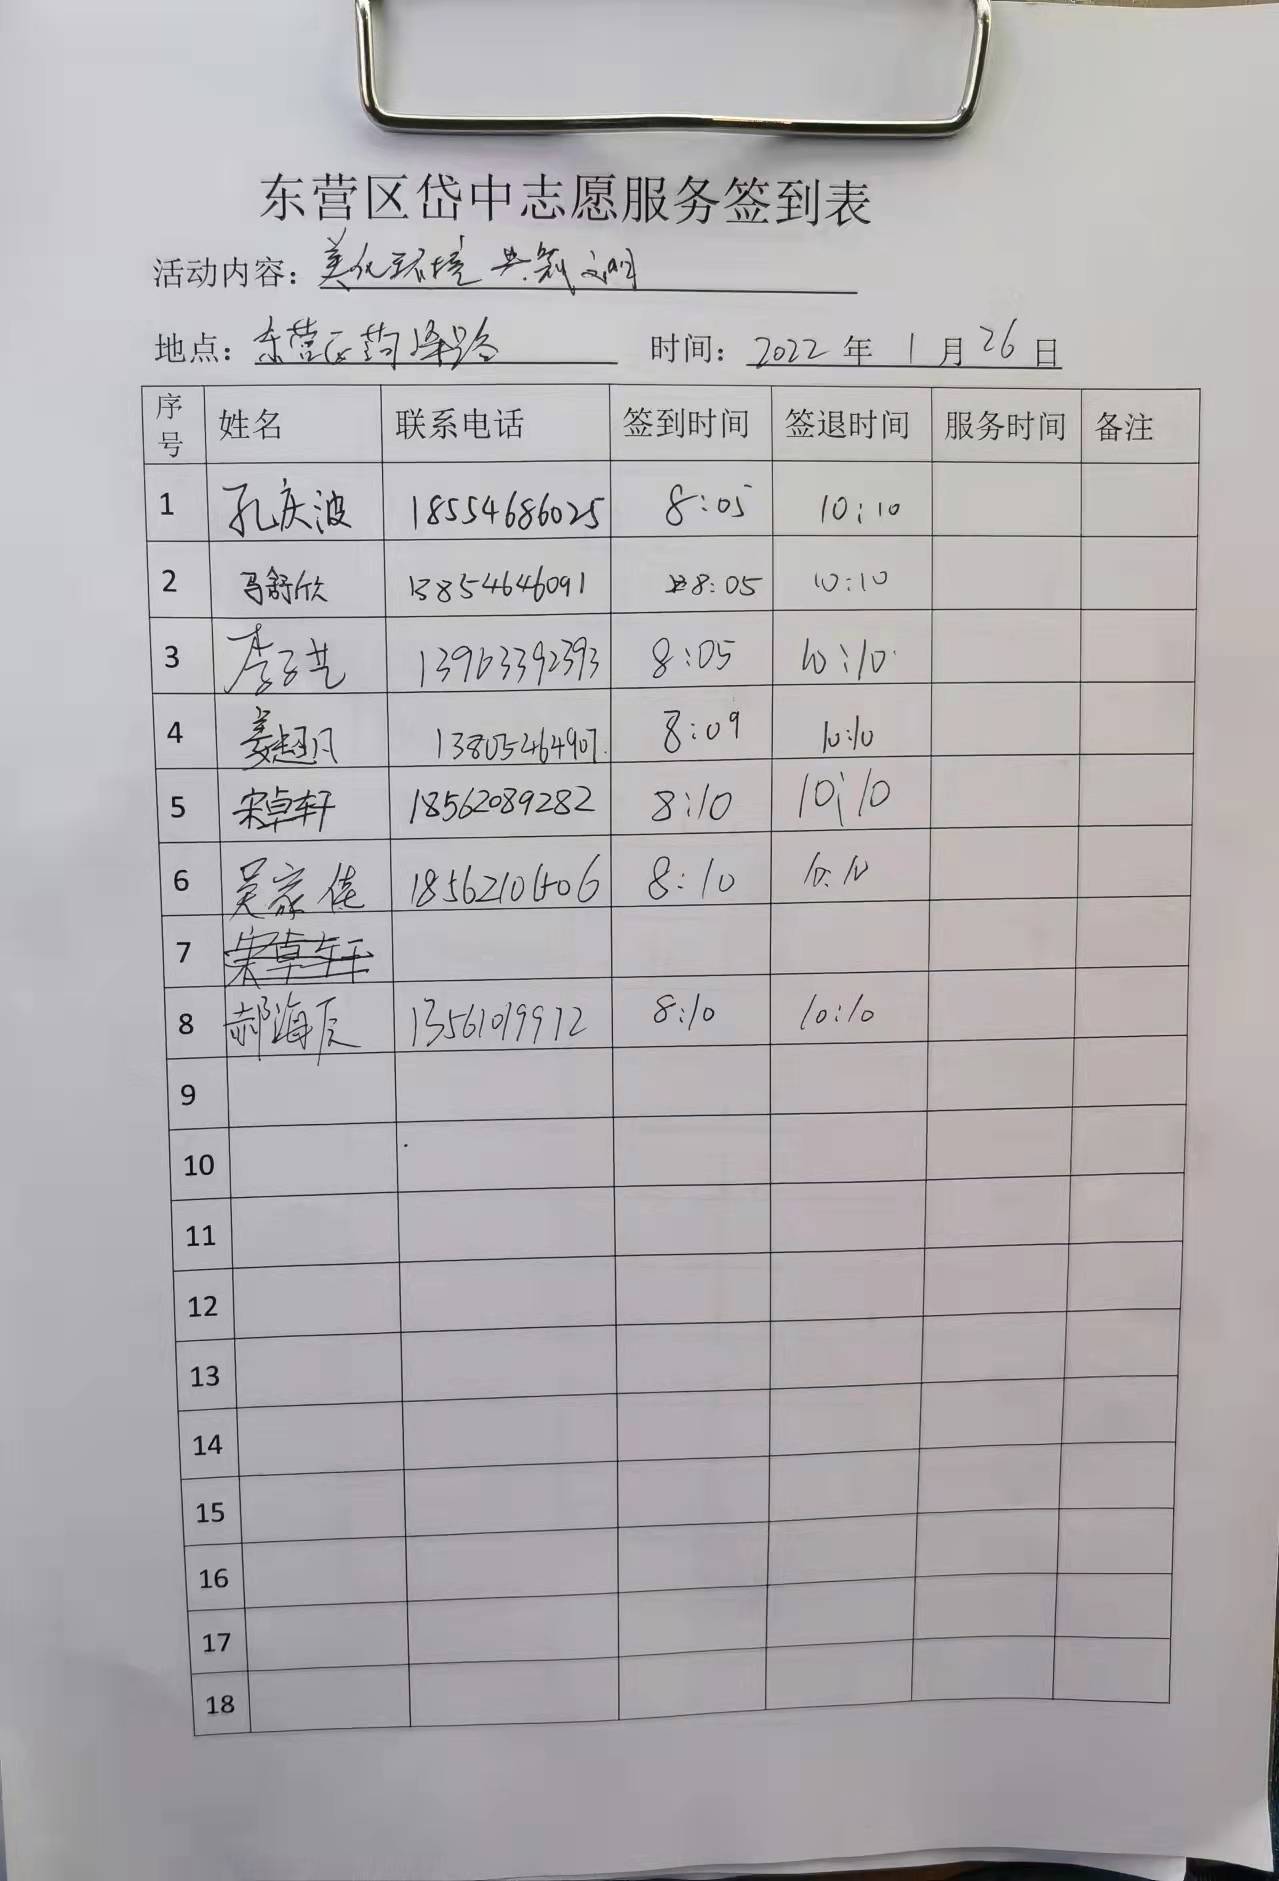 东营区岱中志愿服务签到表
活动内容：美化环境 共筑文明
地点：东营区 路 时间：2022年1月26日
序号 姓名 联系电话 签到时间 签退时间 服务时间 备注
1 孔庆波 18554686025 8:05 10:10
2 马舒欣 13854646091 8:05 10:10
3 李子艺 13963392393 8:05 10:10
4 姜超凡 13805464907 8:09 10:10
5 宋卓轩 18562089282 8:10 10:10
6 吴家佳 8:10 10:10
7 宋卓轩
8 郝海辰 13561019912 8:10 10:10
9
10
11
12
13
14
15
16
17
18